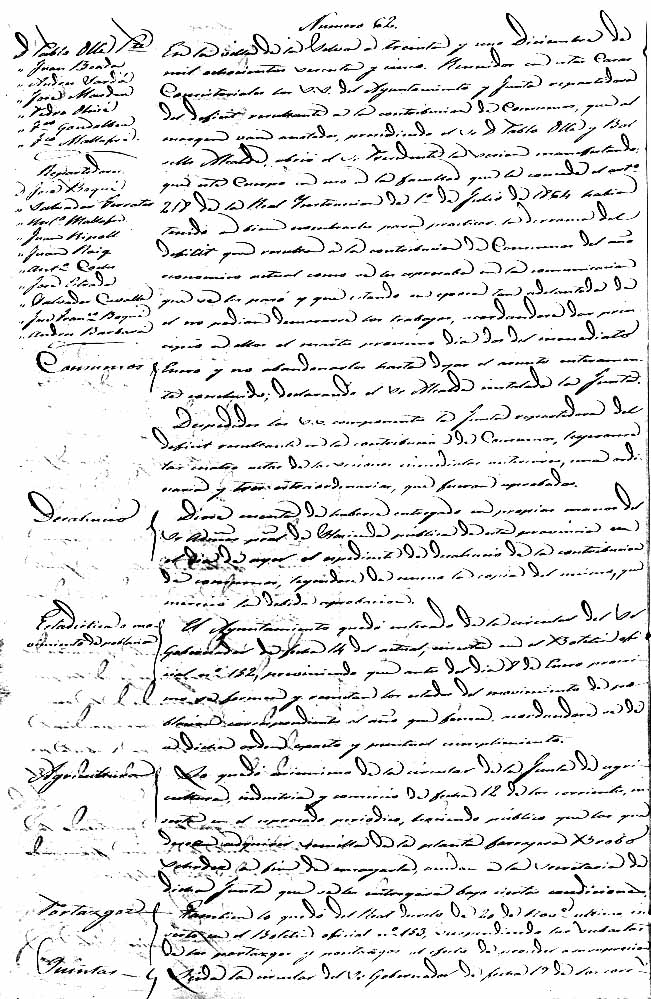 Numero 62.
D. Pablo Ollé Pte
" Juan Boada
" Andres Sardá
" José
" Pedro
" Fco
" Fco Mallafré
Repartidores
D. José Boqué
" Salvador
" Mallafré
" Juan Ripoll
" Juan Roig
" Anto
" José
" Salvador
" José Franco Boqué
" Andres Barberá
En la villa de la Selva a treinta y uno Diciembre de
mil ochocientos sesenta y cinco. Reunidos en estas Casas
Consistoriales los S.S. del Ayuntamiento y Junta repartidora
del deficit resultante a la contribucion de Consumos, que al
margen van anotados, presididos el Sr. D. Pablo Ollé y
Alcalde, abrió el Sr. Presidente la sesion manifestando,
que este Cuerpo en uso a la facultad que le concede el arto
217 de la Real Instruccion de 1º de Julio de 1864 habia
tenido a bien nombrarles para practicar la derrama del
deficit que resulta a la contribucion de Consumos del año
economico actual como se les espresaba en la comunicacion
que se les pasó y que estando en epoca tan adelantada de
el no podian demorarse los trabajos, acordandose dar prin
cipio a ellos el martes proximo dia dos del inmediato
Consumos
Enero y no abandonarles hasta dejar el asunto enteramen
te concluido; declarando el Sr. Alcalde instalada la Junta.
Despedidos los S.S. componentes la Junta repartidora del
deficit resultante en la contribucion de Consumos, leyeronse
las cuatro actas de las sesiones inmediatas anteriores, una ordi
naria y tres extraordinarias, que fueron aprobadas.
Diose cuenta de haberse entregado en propias manos del
Sr. Admor pral de Hacienda publica de esta provincia en
el dia de ayer el expediente de de la contribucion
de consumos, leyendose de nuevo la copia del mismo, que
mereció la debida aprobacion.
Estadistica o mo
vimiento de poblacion
El Ayuntamiento quedó enterado de la circular del Sr.
Gobernador de fecha 14 del actual, inserta en el Boletin ofi
cial nº 152, previniendo que antes del dia 8 de Enero proxi
mo se formen y remitan los estados del movimiento de po
blacion correspondiente al año que fenece, acordandose se dé
a dicha orden exacto y puntual cumplimiento.
Agricultura
Lo quedó asimismo de la circular de la Junta de agri
cultura, industria y comercio de fecha 12 de los corrientes, in
serta en el espresado periodico, haciendo publico que los que
deseen adquirir semilla de la planta forrajera Bromo
Schrader a fin de ensayarla, acudan a la Secretaria de
dicha Junta que se les entregará bajo ciertas condiciones
Portazgos
Tambien lo quedó del Real decreto de 20 de Novre ultimo in
serto en el Boletin oficial nº 153, suspendiendo las subastas
de los portazgos y pontazgos al efecto de
Quintas
Leida la circular del Sr. Gobernador de fecha 19 de los corri